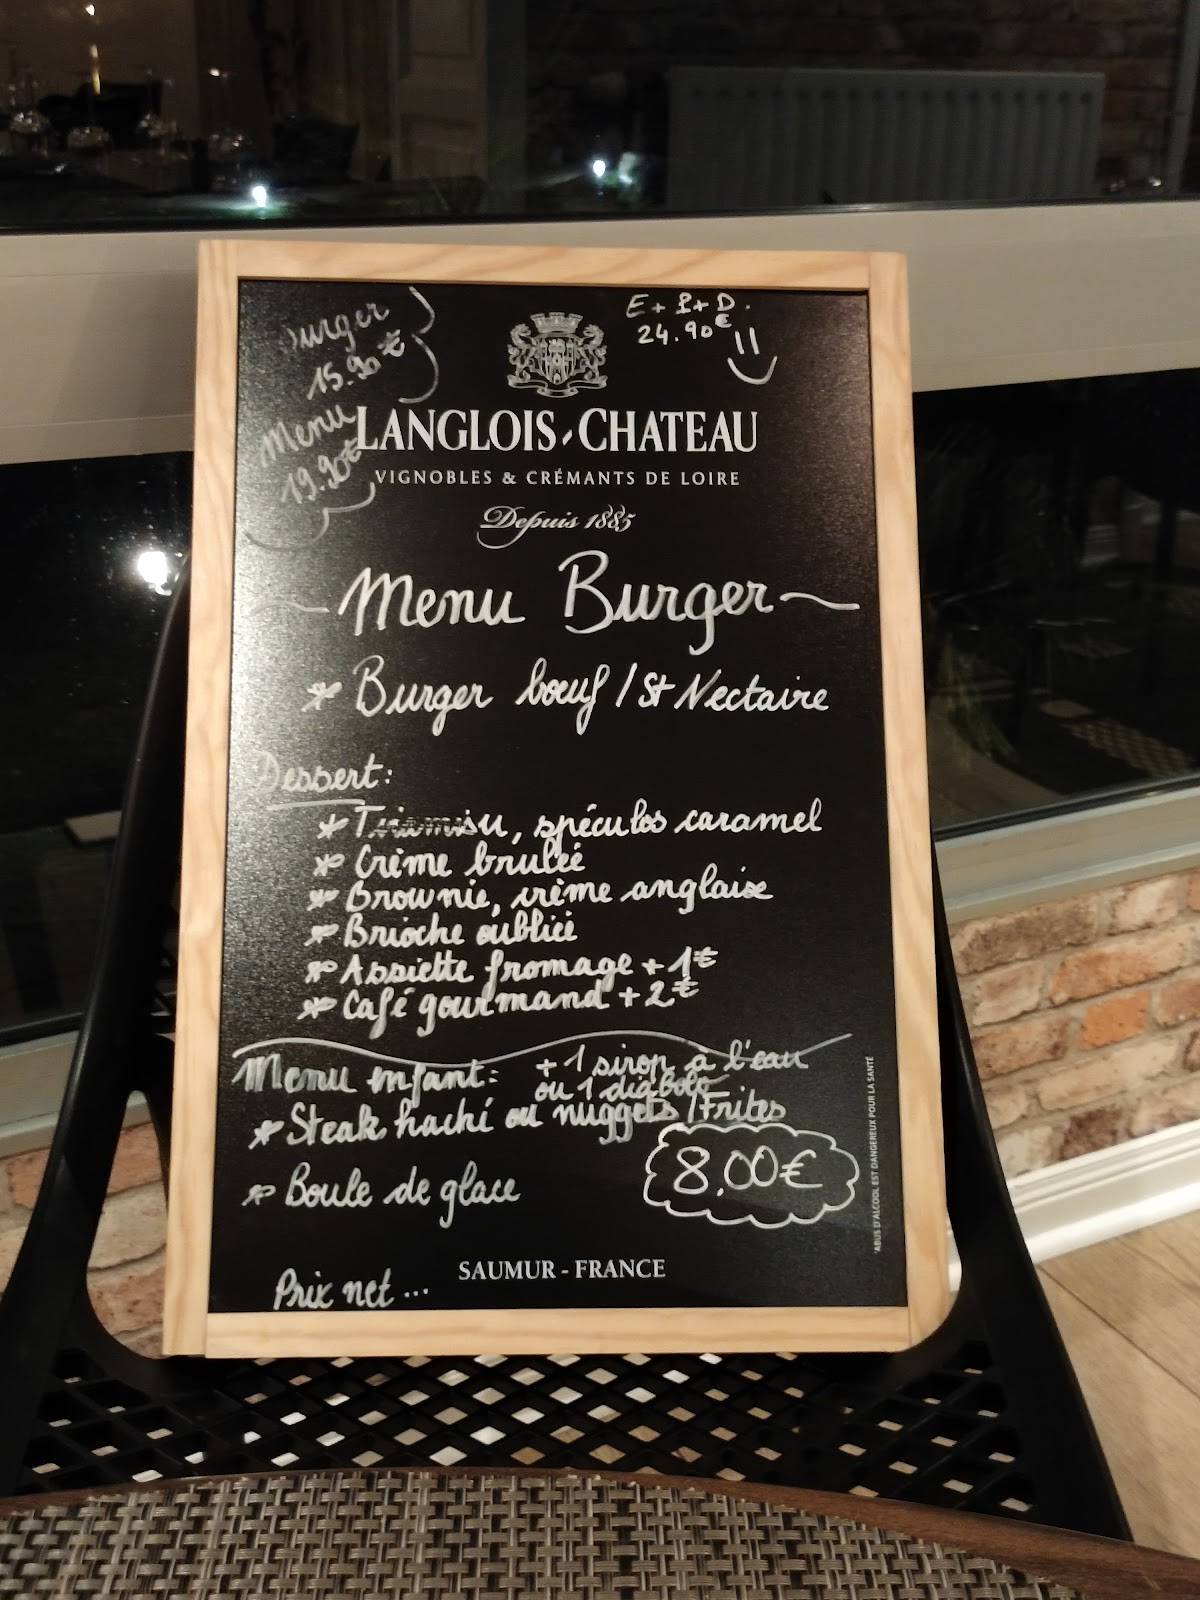 Burger
15.90€
Menu
19.90€
E + P + D.
24.90€
LANGLOIS-CHATEAU
VIGNOBLES & CRÉMANTS DE LOIRE
Depuis 1885
Menu Burger
* Burger bœuf / St Nectaire
Dessert:
* Tiramisu, spéculos caramel
* Crème brulée
* Brownie, crème anglaise
* Brioche oubliée
* Assiette fromage + 1€
* Café gourmand + 2€
Menu enfant: + 1 sirop à l'eau
ou 1 diabolo
* Steak haché ou nuggets / Frites
8.00€
* Boule de glace
Prix net...
SAUMUR - FRANCE
*ABUS D'ALCOOL EST DANGEREUX POUR LA SANTÉ